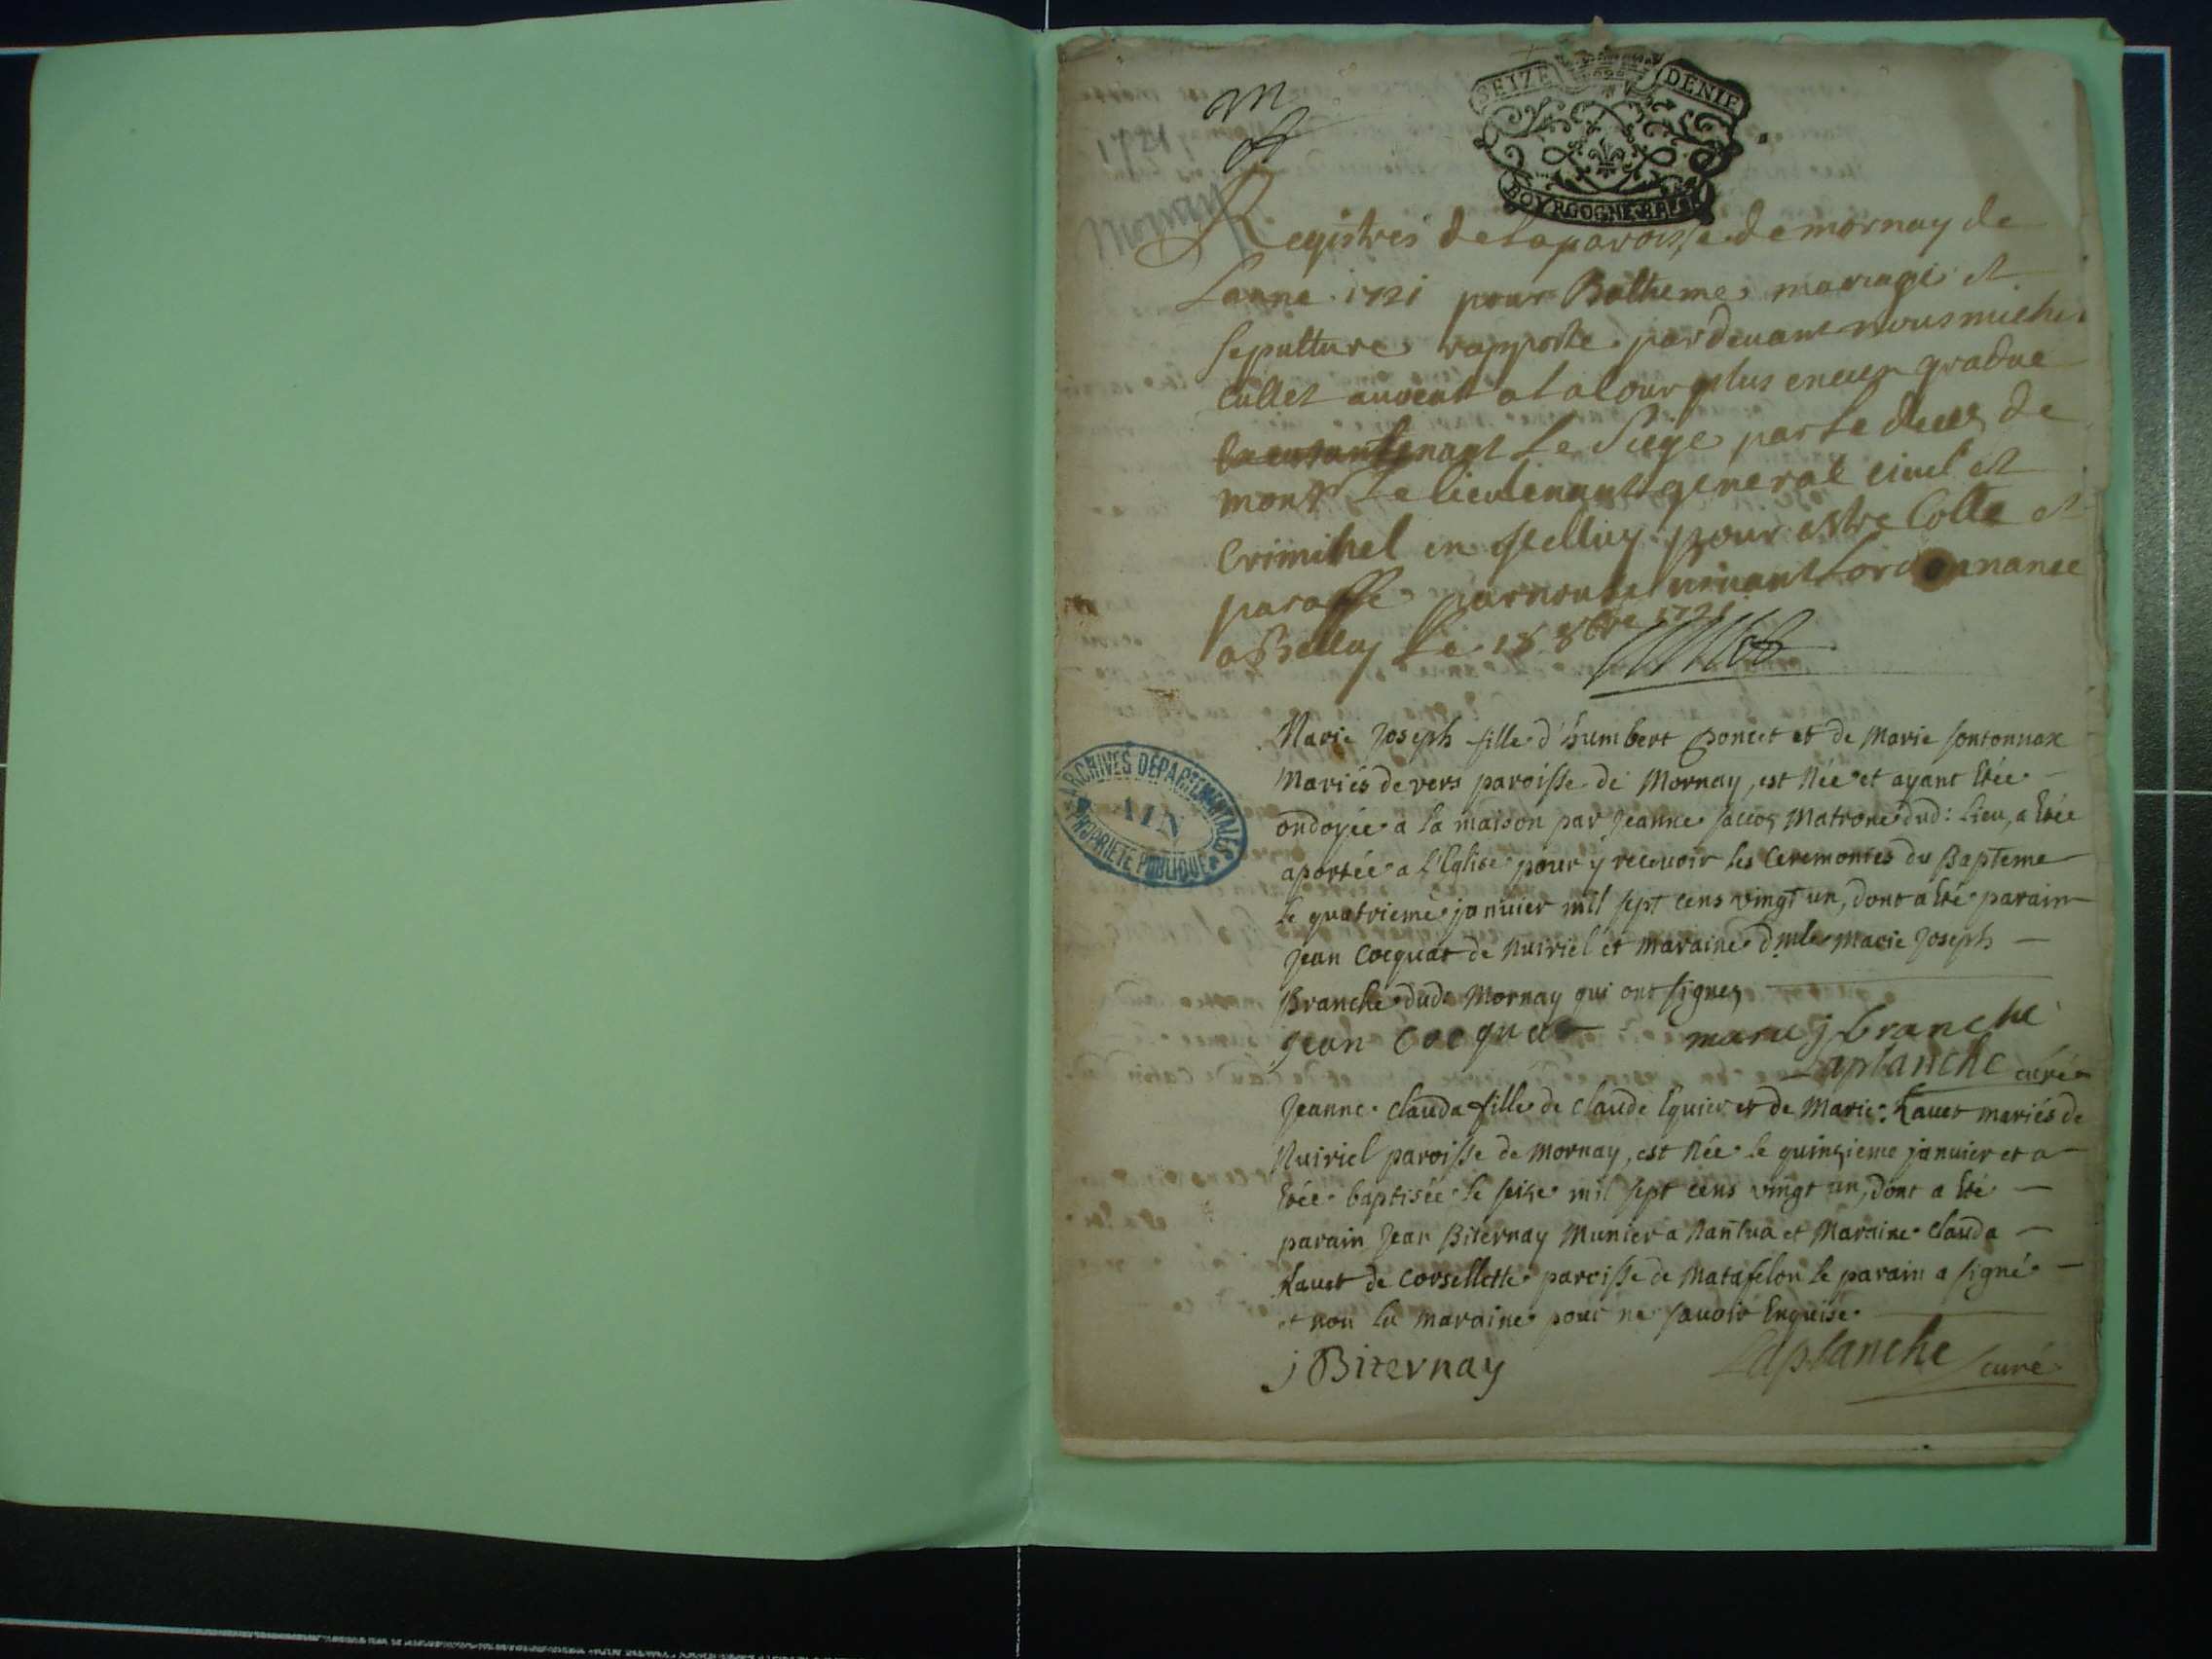 SEIZE DENIE
BOVRGOGNE BRESS
m
1721
Mornay
Registres de la paroisse de mornay de
Lanne 1721 pour Batheme mariage et
sepulture rapporte pardeuant nous miche
Cullet auocat a la Cour plus encien gradue
tenant Le Siege par le deces de
monsr Le lieutenant general ciuil et
Criminel en pour estre Cotte et
paraffe par nous suiuant Lordonnance
a Belley Le 18 8bre 1721
Marie Joseph fille d'humbert poncet et de Marie fontonnax
Mariés de vers paroisse de Mornay, est Née et ayant Etée
ondoyée a la maison par Jeanne Matrone dud: Lieu, a Etée
aportée a l'Eglise pour y recevoir les Ceremonies du Bapteme
le quatrieme janvier mil sept cens vingt un, dont a Eté parain
Jean Cocquat de Nuiriel et maraine dmle marie Joseph
Branche dud. Mornay qui ont signez
Jean Cocquat marie j branche
Laplanche curé
Jeanne clauda fille de claude Eguier et de Marie Rauet mariés de
Nuiriel paroisse de mornay, est Née le quinzieme januier et a
Etée baptisée le seize mil sept cens vingt un, dont a Eté
parain Jean Biternay Munier a Nantua et Maraine clauda
Rauet de Corsellette paroisse de Matafelon le parain a signé
et non la maraine pour ne sauoir Enquise
j Biternay Laplanche curé
ARCHIVES DEPARTEMENTALES
AIN
PROPRIETE PUBLIQUE